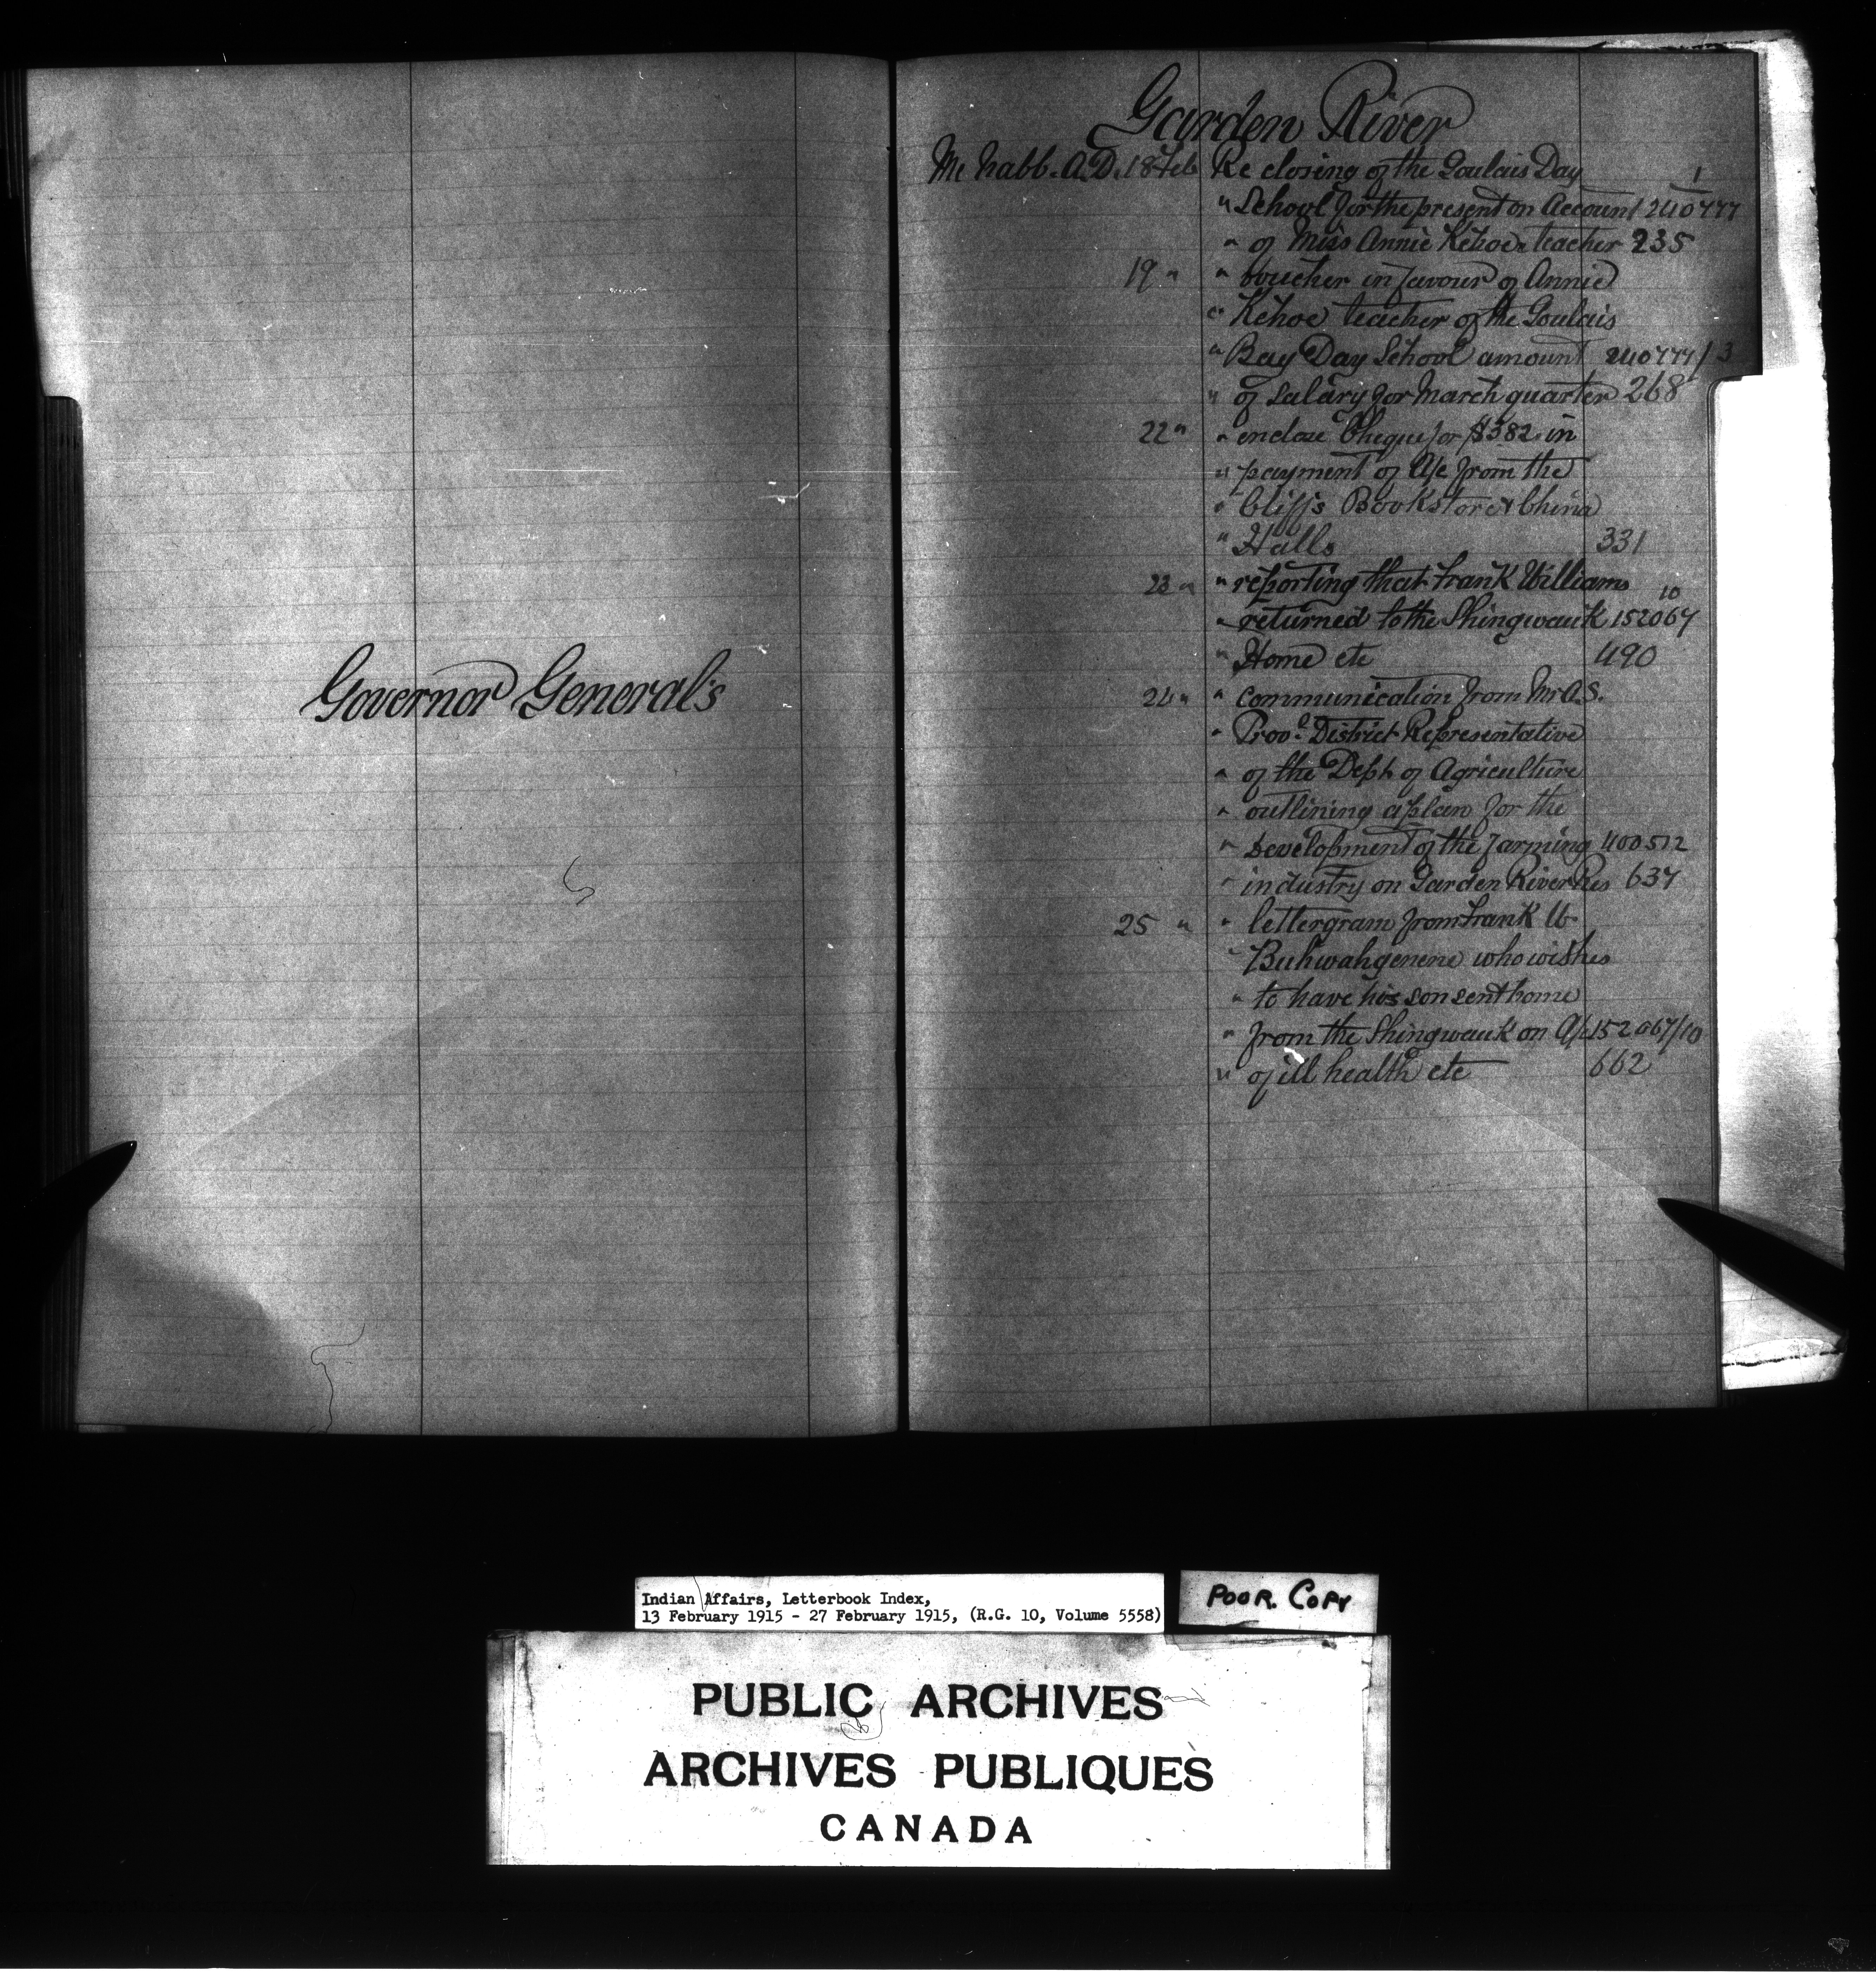 Governor General's
Garden River
McNabb. A.D. 18 Feb Re closing of the Goulais Day 1
" School for the present on Account 240777
" of Miss Annie Kehoe teacher 235
19 " " voucher in favour of Annie
" Kehoe teacher of the Goulais
" Bay Day School amount 240777/3
" of salary for March quarter 268
22 " " enclose Cheque for $382 in
" payment of A/c from the
" Cliffs Bookstore & China
" Halls 331
23 " " reporting that Frank Williams 10
" returned to the Shingwauk 152067
" Home etc 490
24 " " communication from Mr A.S.
" District Representative
" of the Dept of Agriculture
" outlining a plan for the
" development of the farming 400512
" industry on Garden River Res 637
25 " " lettergram from Frank W.
" Buhwahgenene who wishes
" to have his son sent home
" from the Shingwauk on A/c 152067/10
" of ill health etc 662
Indian Affairs, Letterbook Index,
13 February 1915 - 27 February 1915, (R.G. 10, Volume 5558)
POOR. COPY
PUBLIC ARCHIVES
ARCHIVES PUBLIQUES
CANADA